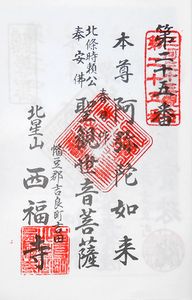 第二十五番
本尊阿弥陀如来
奉拝
聖観世音菩薩
北條時頼公
奉安佛
幡豆郡吉良町
北星山
西福寺